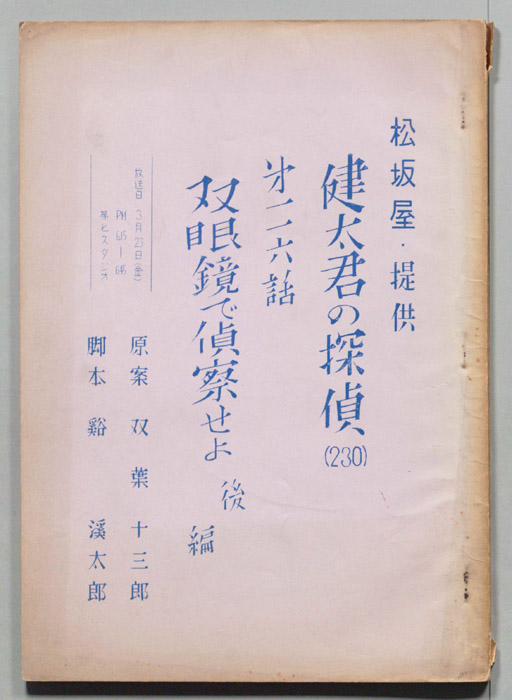 松坂屋・提供
健太君の探偵(230)
才一二六話
双眼鏡で偵察せよ 後編
放送日 3月23日(金)
PM 6:15―6:45
原案 双葉十三郎
脚本 谿渓太郎